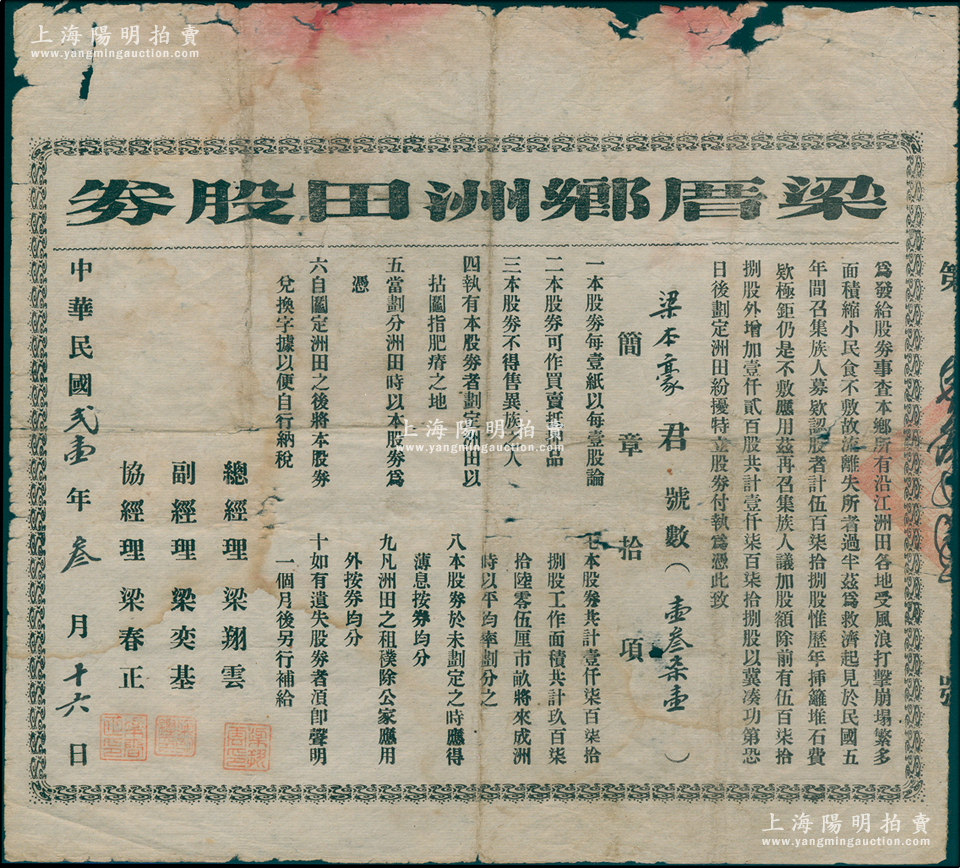 上海陽明拍賣
www.yangmingauction.com
上海陽明拍賣
www.yangmingauction.com
梁厝鄉洲田股劵
第
號
爲發給股劵事查本鄉所有沿江洲田各地受風浪打擊崩塌繁多
面積縮小民食不敷故流離失所者過半茲爲救濟起見於民國五
年間召集族人募欵認股者計伍百柒拾捌股惟歷年揷籬堆石費
欵極鉅仍是不敷應用茲再召集族人議加股額除前有伍百柒拾
捌股外增加壹仟貳百股共計壹仟柒百柒拾捌股以冀凑功第恐
日後劃定洲田紛擾特立股券付執爲憑此致
梁本豪君 號數（壹叁柒壹）
簡章拾項
一本股劵每壹紙以每壹股論
二本股劵可作買賣抵押品
三本股劵不得售異族之人
四執有本股劵者劃定洲田以
拈鬮指肥瘠之地
五當劃分洲田時以本股劵爲
憑
六自鬮定洲田之後將本股劵
兌換字據以便自行納稅
七本股劵共計壹仟柒百柒拾
捌股工作面積共計玖百柒
拾陸零伍厘市畝將來成洲
時以平均率劃分之
八本股劵於未劃定之時應得
薄息按劵均分
九凡洲田之租穙除公家應用
外按劵均分
十如有遺失股劵者湏卽聲明
一個月後另行補給
總經理 梁翔雲
副經理 梁奕基
協經理 梁春正
中華民國弍壹年叁月十六日
上海陽明拍賣
www.yangmingauction.com
上海陽明拍賣
www.yangmingauction.com